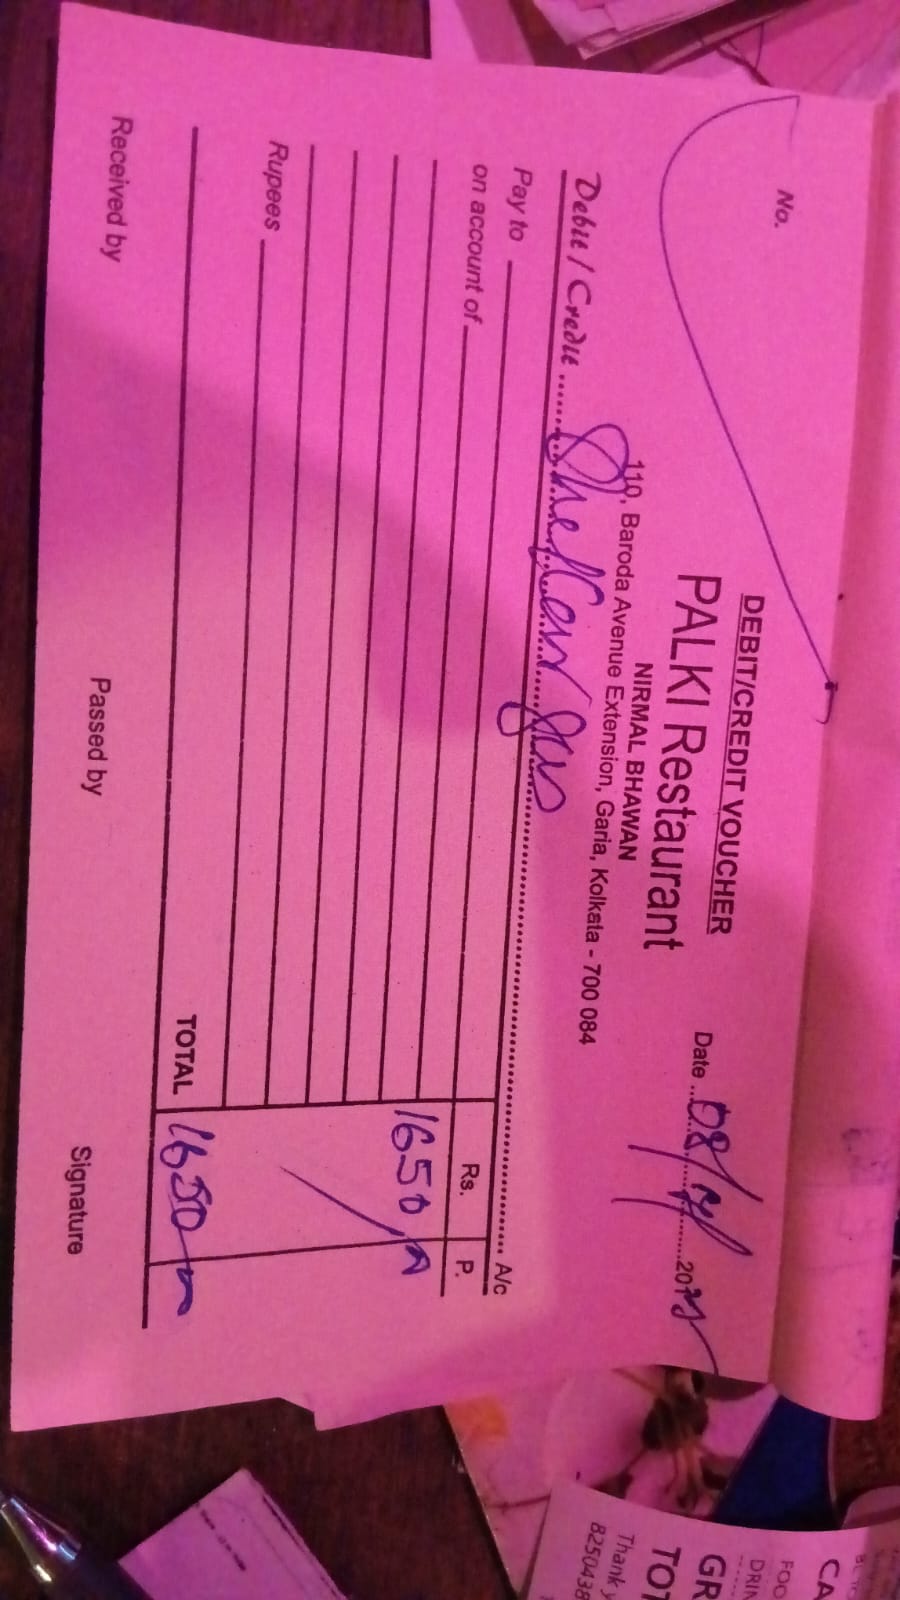 No.
DEBIT/CREDIT VOUCHER
PALKI Restaurant
NIRMAL BHAWAN
110, Baroda Avenue Extension, Garia, Kolkata - 700 084
Date ... 08/ 20
Debit / Credit ........ Das ........ A/c
Pay to
on account of
Rs. P.
1650/
Rupees
TOTAL 1650
Received by Passed by Signature
CA
FOO
DRIN
GR
TOT
Thank y
8250438